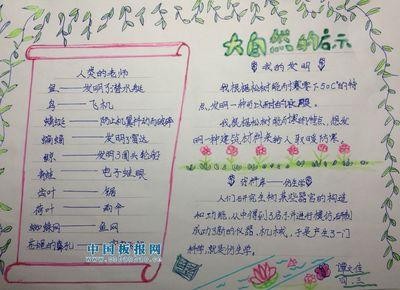 大自然的启示
人类的老师
鱼——发明了潜水艇
鸟——飞机
蜻蜓——防止机翼抖动而破碎
蝙蝠——发明了雷达
鲸——发明了圆头轮船
青蛙——电子蛙眼
齿叶——锯
荷叶——雨伞
蜘蛛网——鱼网
苍蝇的鼻孔——
我的发明
我根据松树能耐寒零下50℃的特
点,发明一种可以耐寒的衣服。
我根据松树能耐寒的特点,想发
明一种建筑材料来给人取暖防寒。
资料库——仿生学
人们研究生物某些器官的构造
和功能,从中得到了启示并进行模仿,研制
成功了新的仪器、机械,于是产生了一门
科学,就是仿生学。
谭文佳
四.三
中国板报网